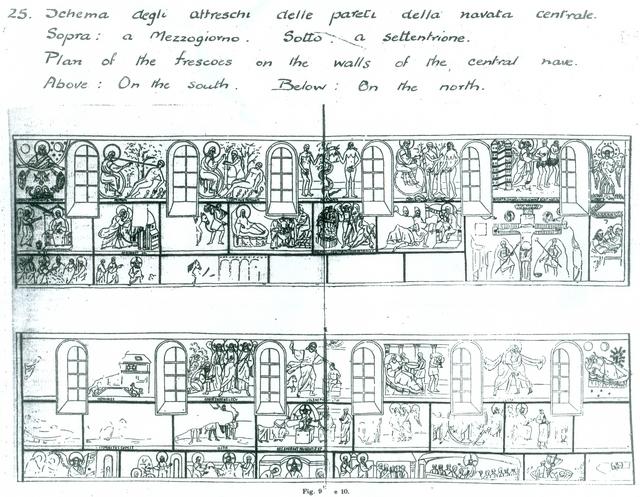 25. Schema degli affreschi delle pareti della navata centrale.
Sopra: a Mezzogiorno. Sotto: a settentrione.
Plan of the frescoes on the walls of the central nave.
Above: On the south. Below: On the north.
Fig. 9 e 10.